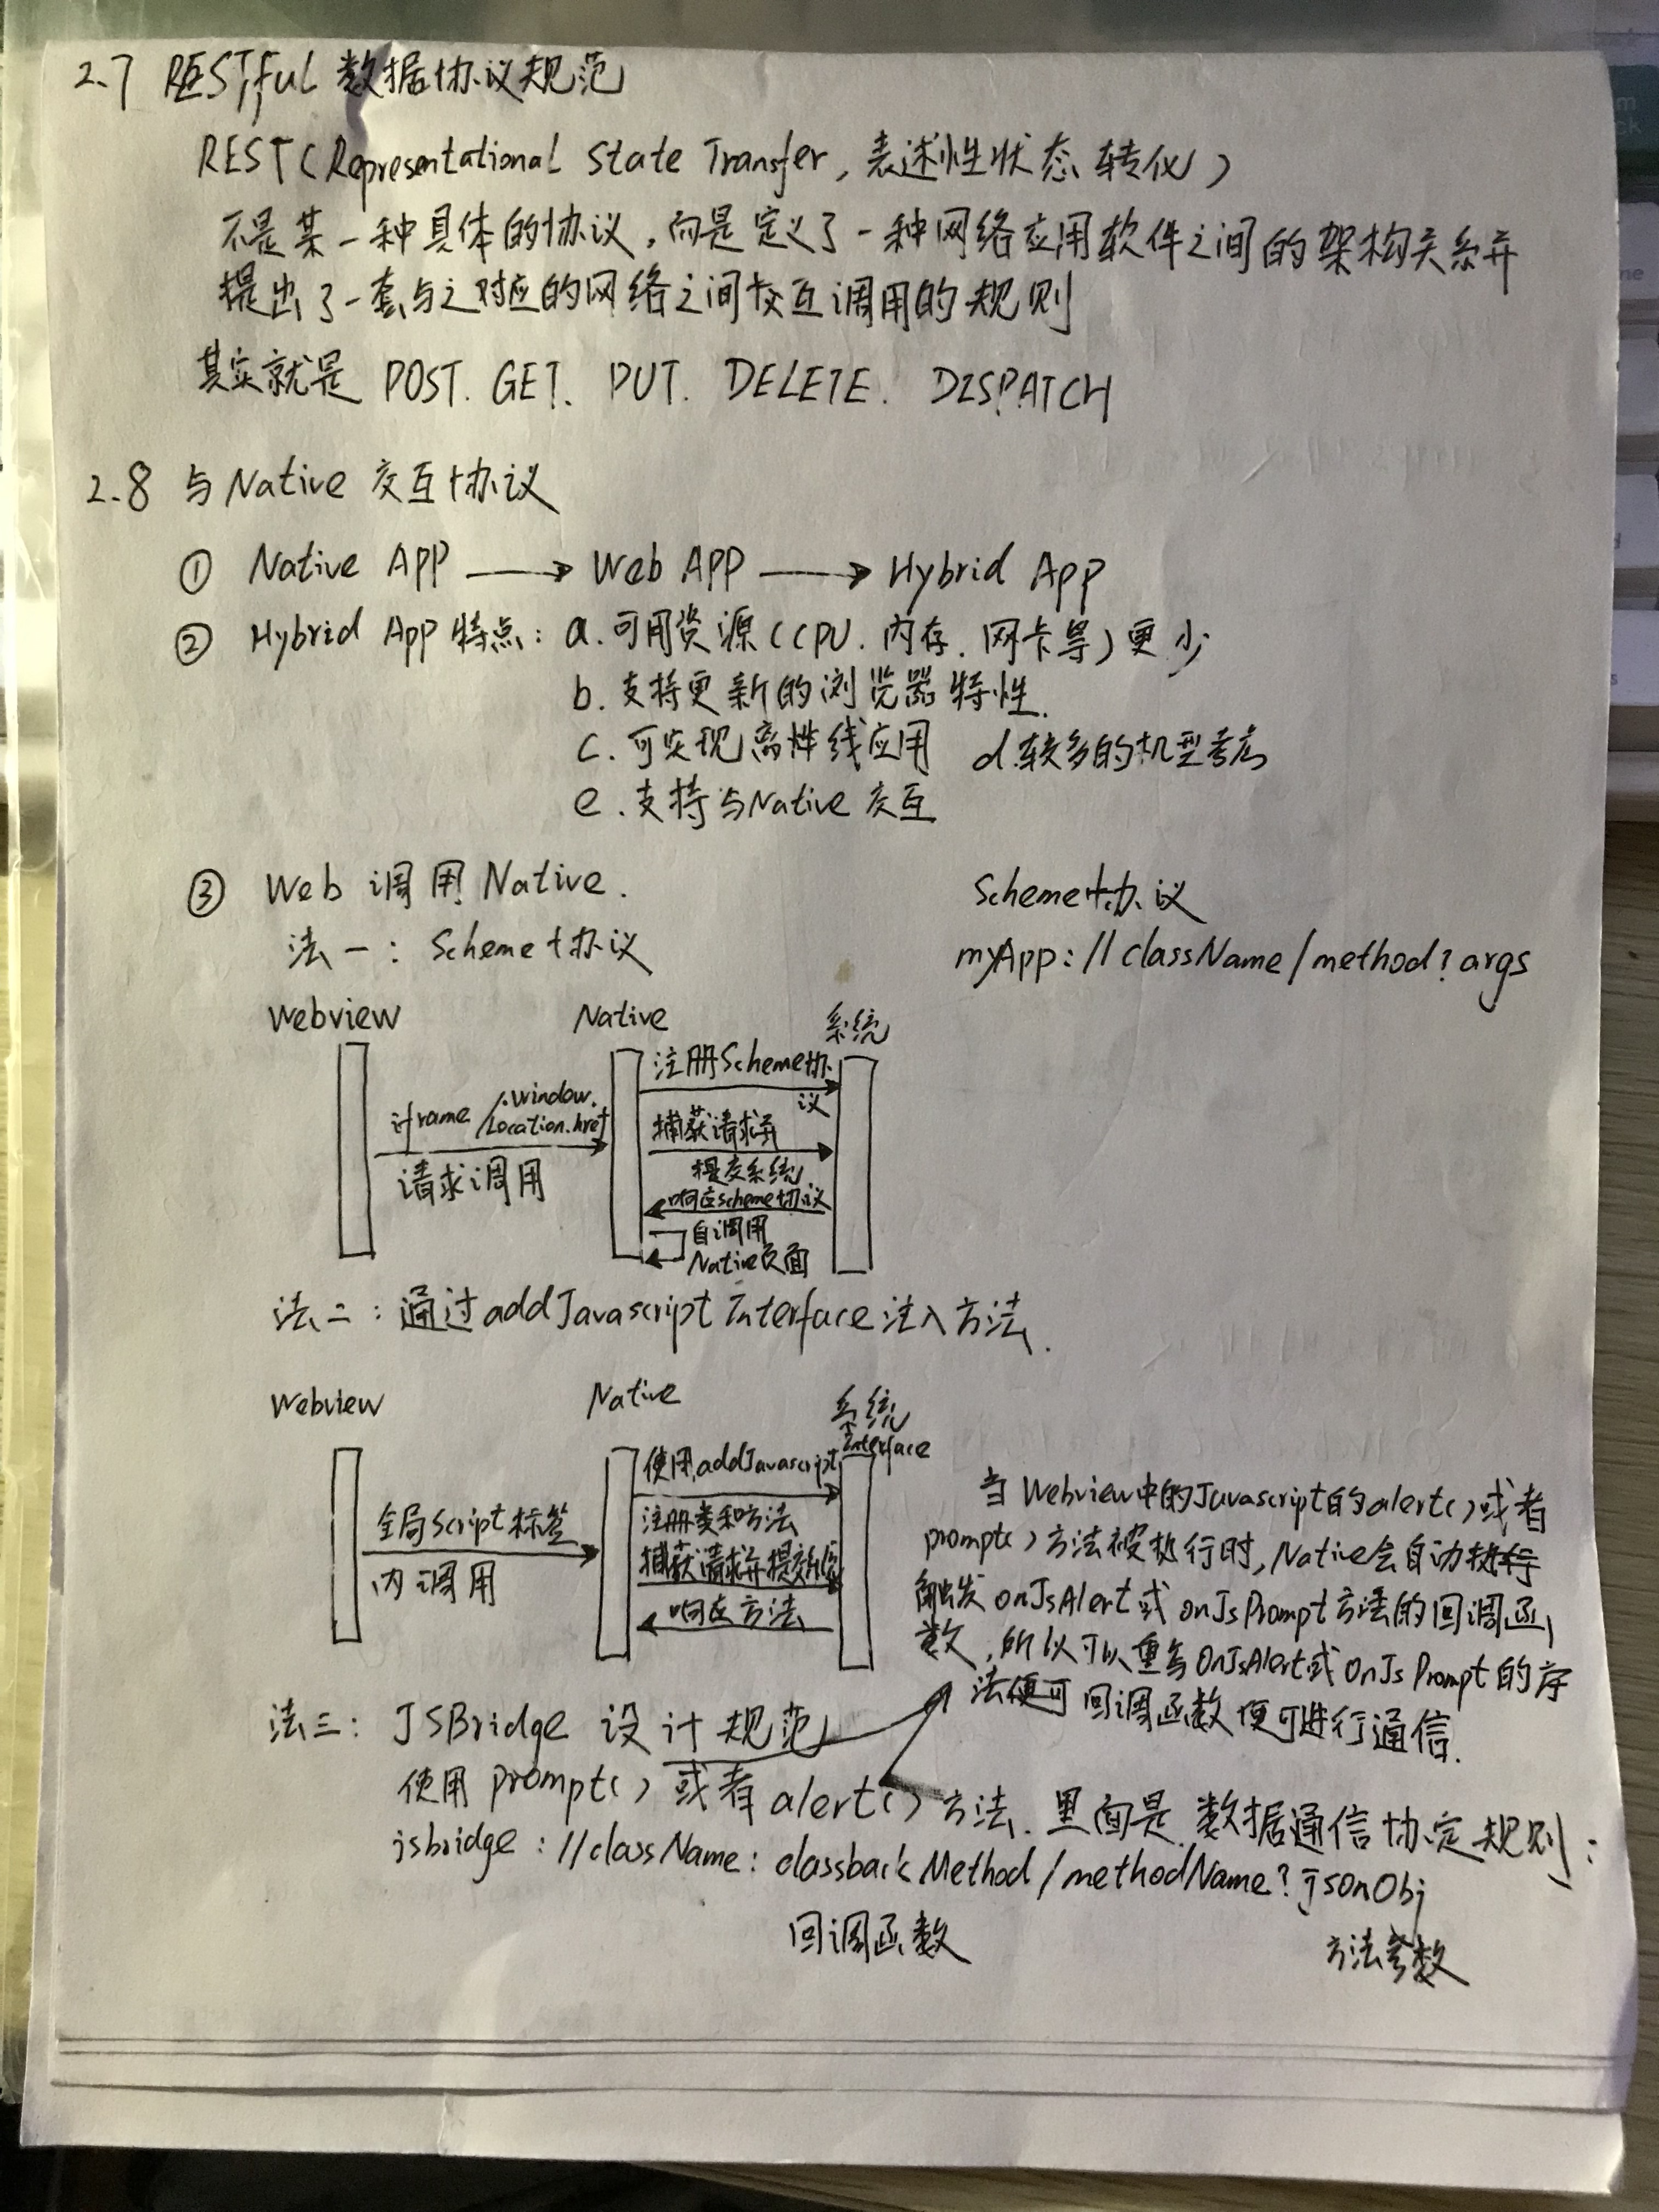 2.7 RESTful 数据协议规范
REST(Representational State Transfer,表述性状态转化)
不是某一种具体的协议,而是定义了一种网络应用软件之间的架构关系并
提出了一套与之对应的网络之间交互调用的规则
其实就是 POST. GET. PUT. DELETE. DISPATCH
2.8 与Native 交互协议
① Native APP → Web APP → Hybrid App
② Hybrid App 特点: a.可用资源(CPU.内存.网卡等)更少
b.支持更新的浏览器特性.
c.可实现离线应用 d.较多的机型考虑
e.支持与Native交互
③ Web 调用 Native.
法一: Scheme协议
Scheme协议
myApp://className/method?args
Webview Native 系统
注册Scheme协
议
iframe/window.
location.href
请求调用
捕获请求并
提交系统
响应scheme协议
自调用
Native页面
法二:通过addJavascriptInterface注入方法.
Webview Native 系统
使用addJavascript
Interface
注册类和方法
全局Script标签
内调用
捕获请求并提交系统
响应方法
当Webview中的Javascript的alert()或者
prompt()方法被执行时,Native会自动
触发onJsAlert或onJsPrompt方法的回调函
数,所以可以重写OnJsAlert或OnJsPrompt的
回调函数便可进行通信.
法三: JSBridge 设计规范
使用prompt()或者alert()方法.里面是数据通信协定规则:
jsbridge://className:classbackMethod/methodName?jsonObj
回调函数 方法参数